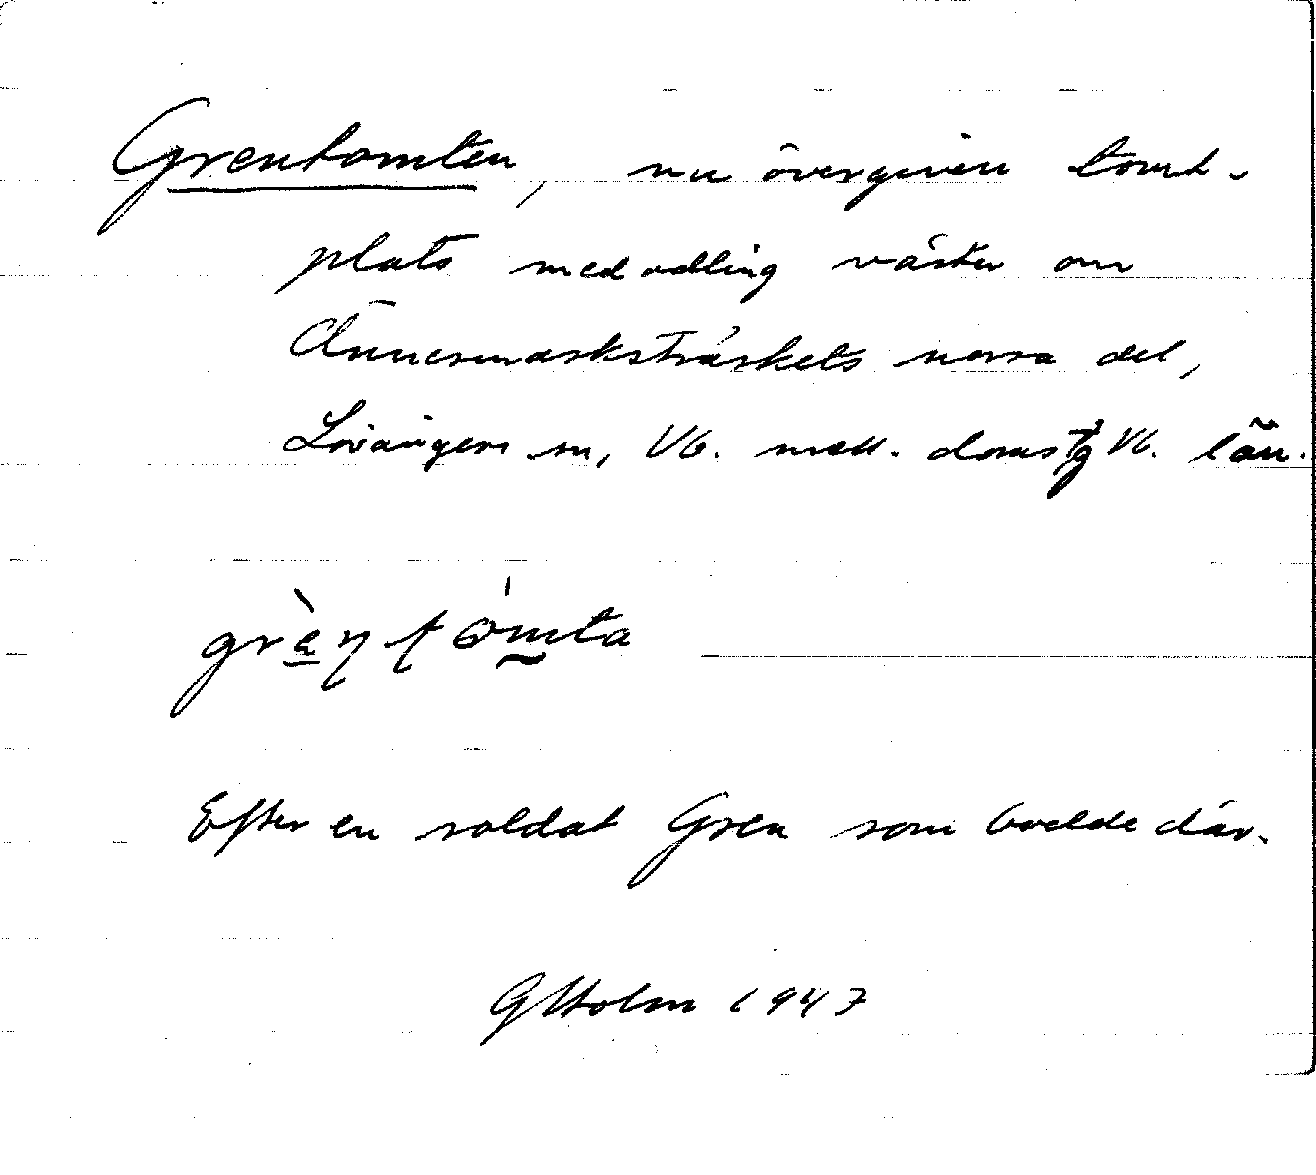 Grentomten, nu övergiven tomt-
plats med odling väster om
Ånnesmarksträskets norra del,
Lövångers sn, Vb. mell. domsg Vb. län.
grèn tómta
Efter en soldat Gren som bodde där.
GHolm 1947